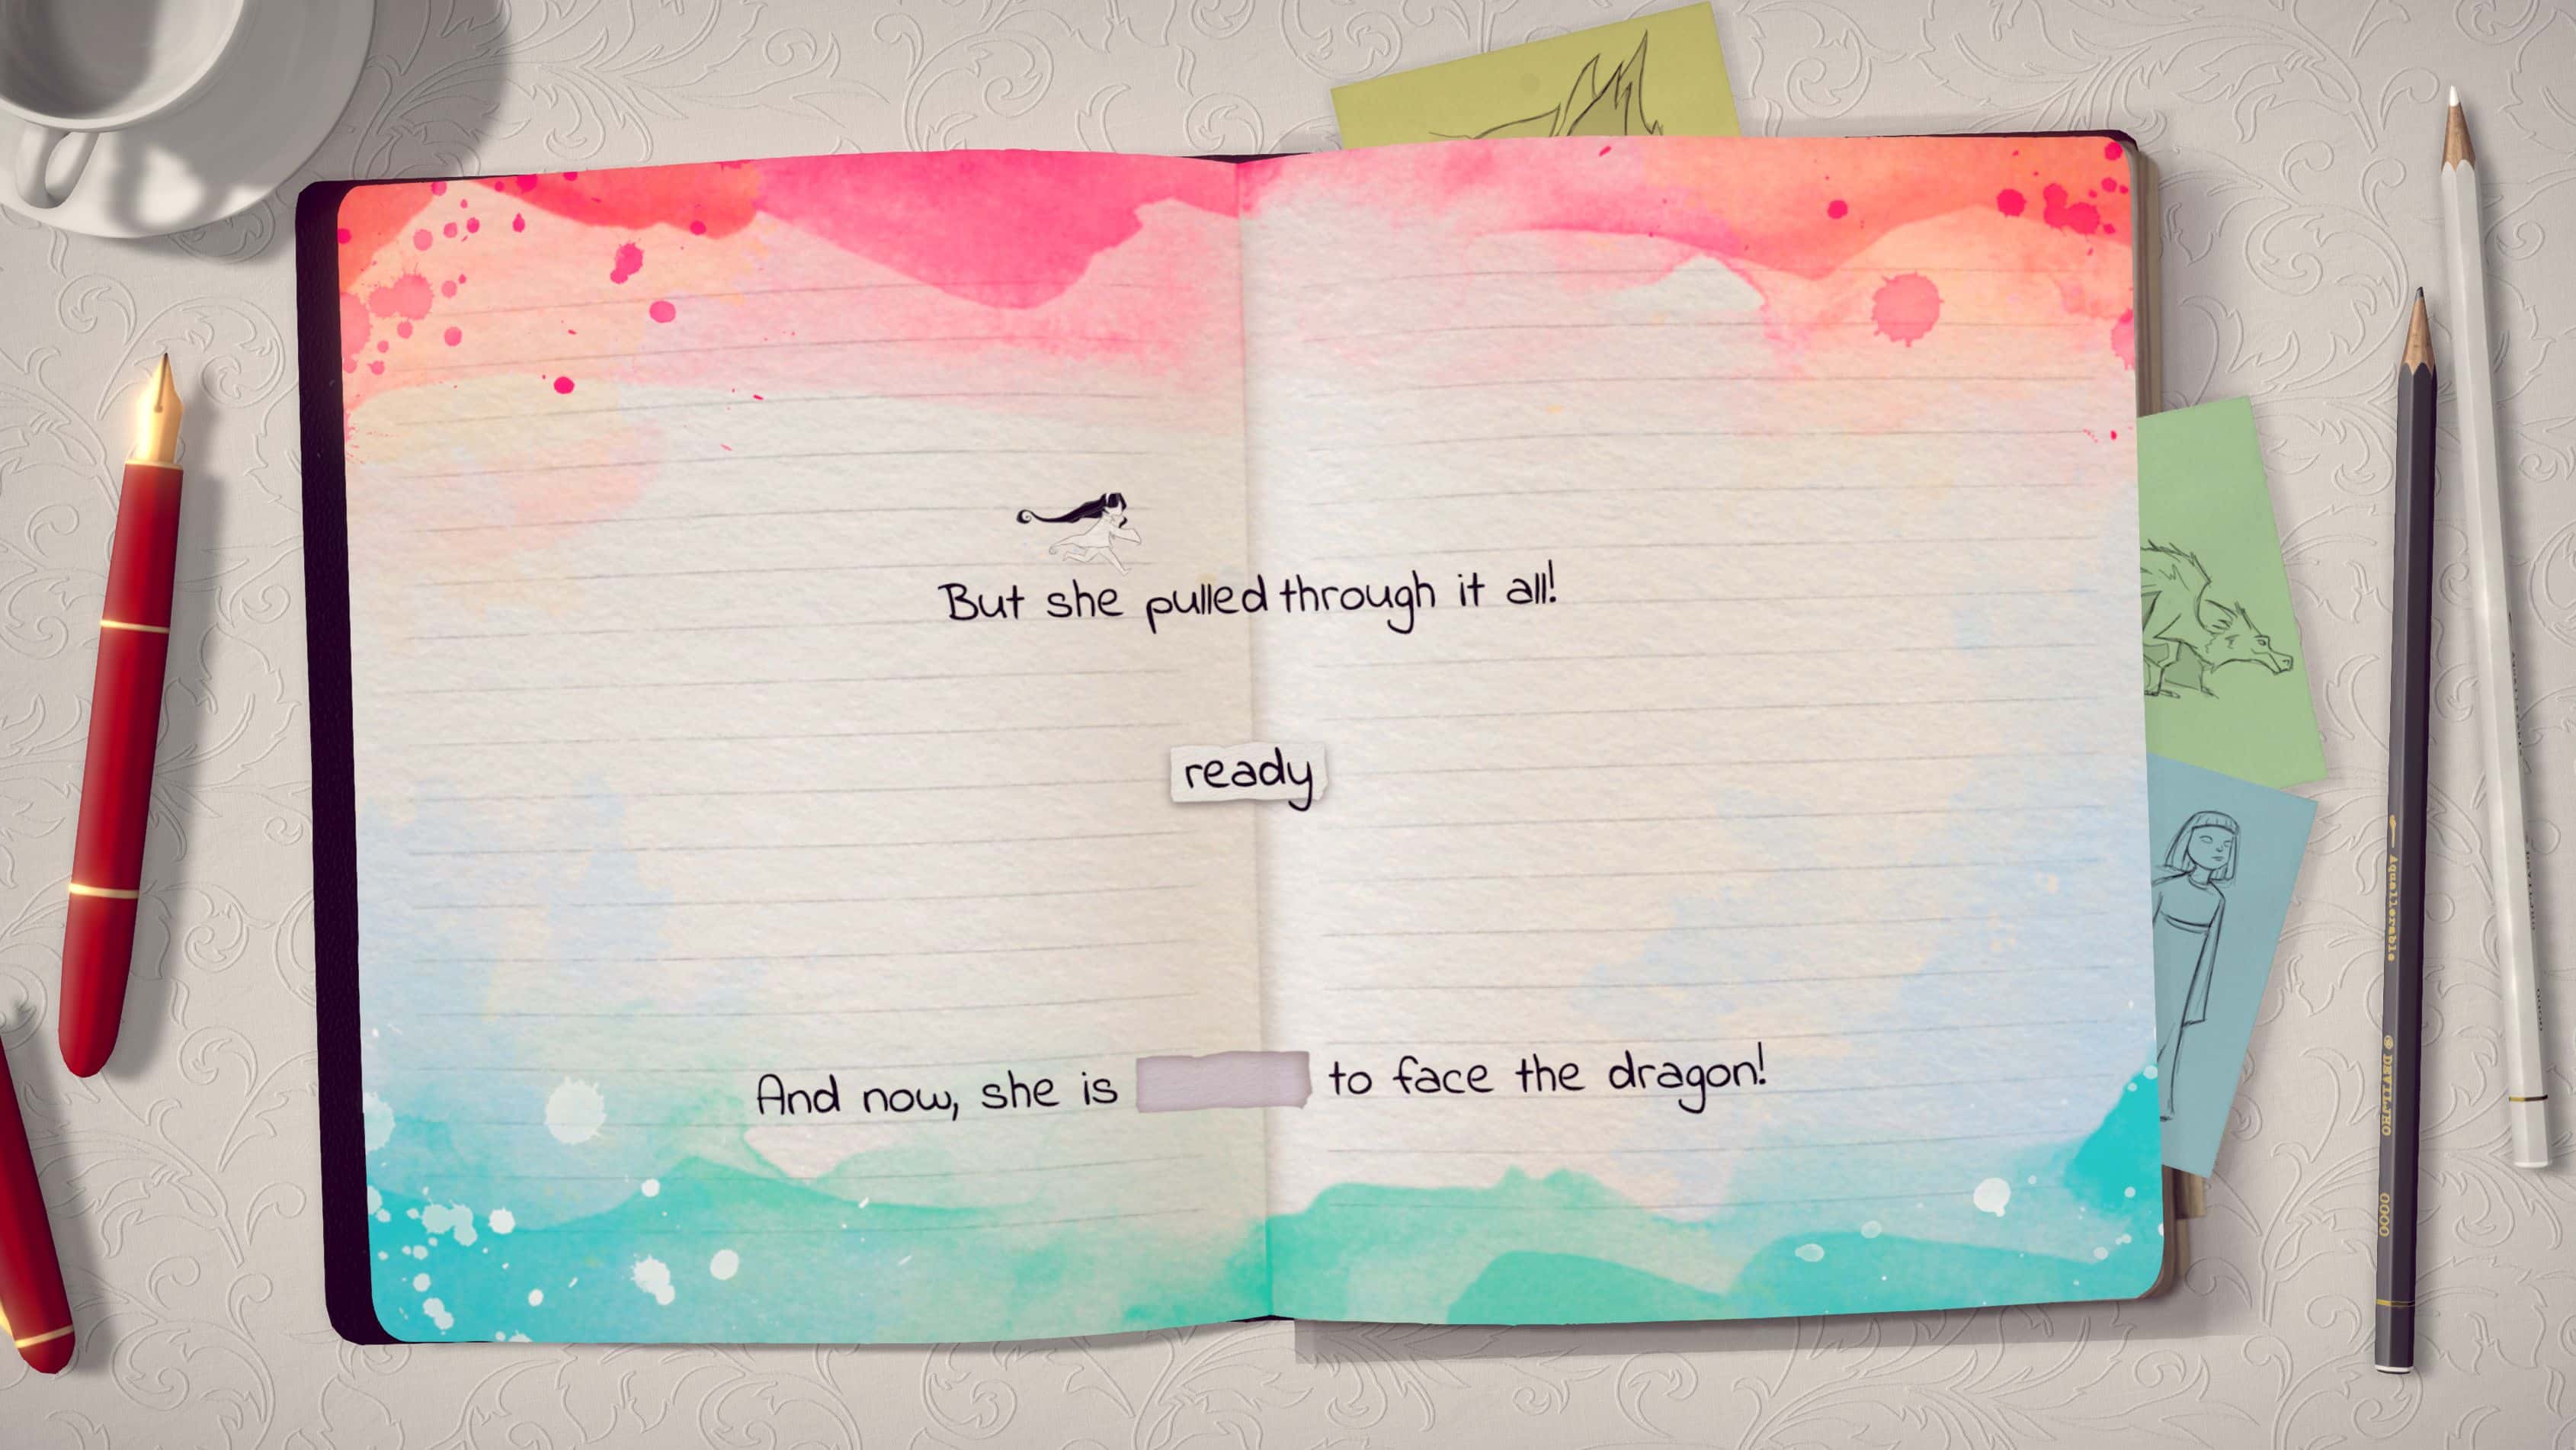 But she pulled through it all!
ready
And now, she is to face the dragon!
Aqualierable
@ DEVILJHO
00000